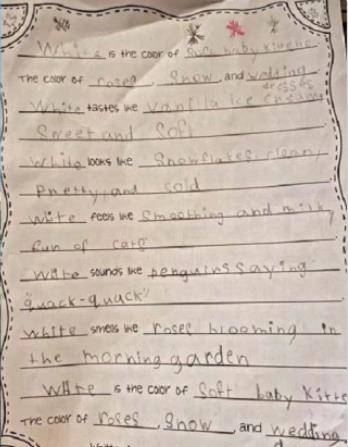 White is the color of soft baby kittens.
The color of roses, Snow, and wedding
dresses
White tastes like Vanilla ice cream
Sweet and Soft
White looks like Snowflakes, clean,
Pretty, and cold
White feels like Smoothing and milky
fun of care
White sounds like penguins saying
"quack-quack"
White smells like roses blooming in
the morning garden
White is the color of Soft baby Kitte
The color of roses, Snow, and wedding